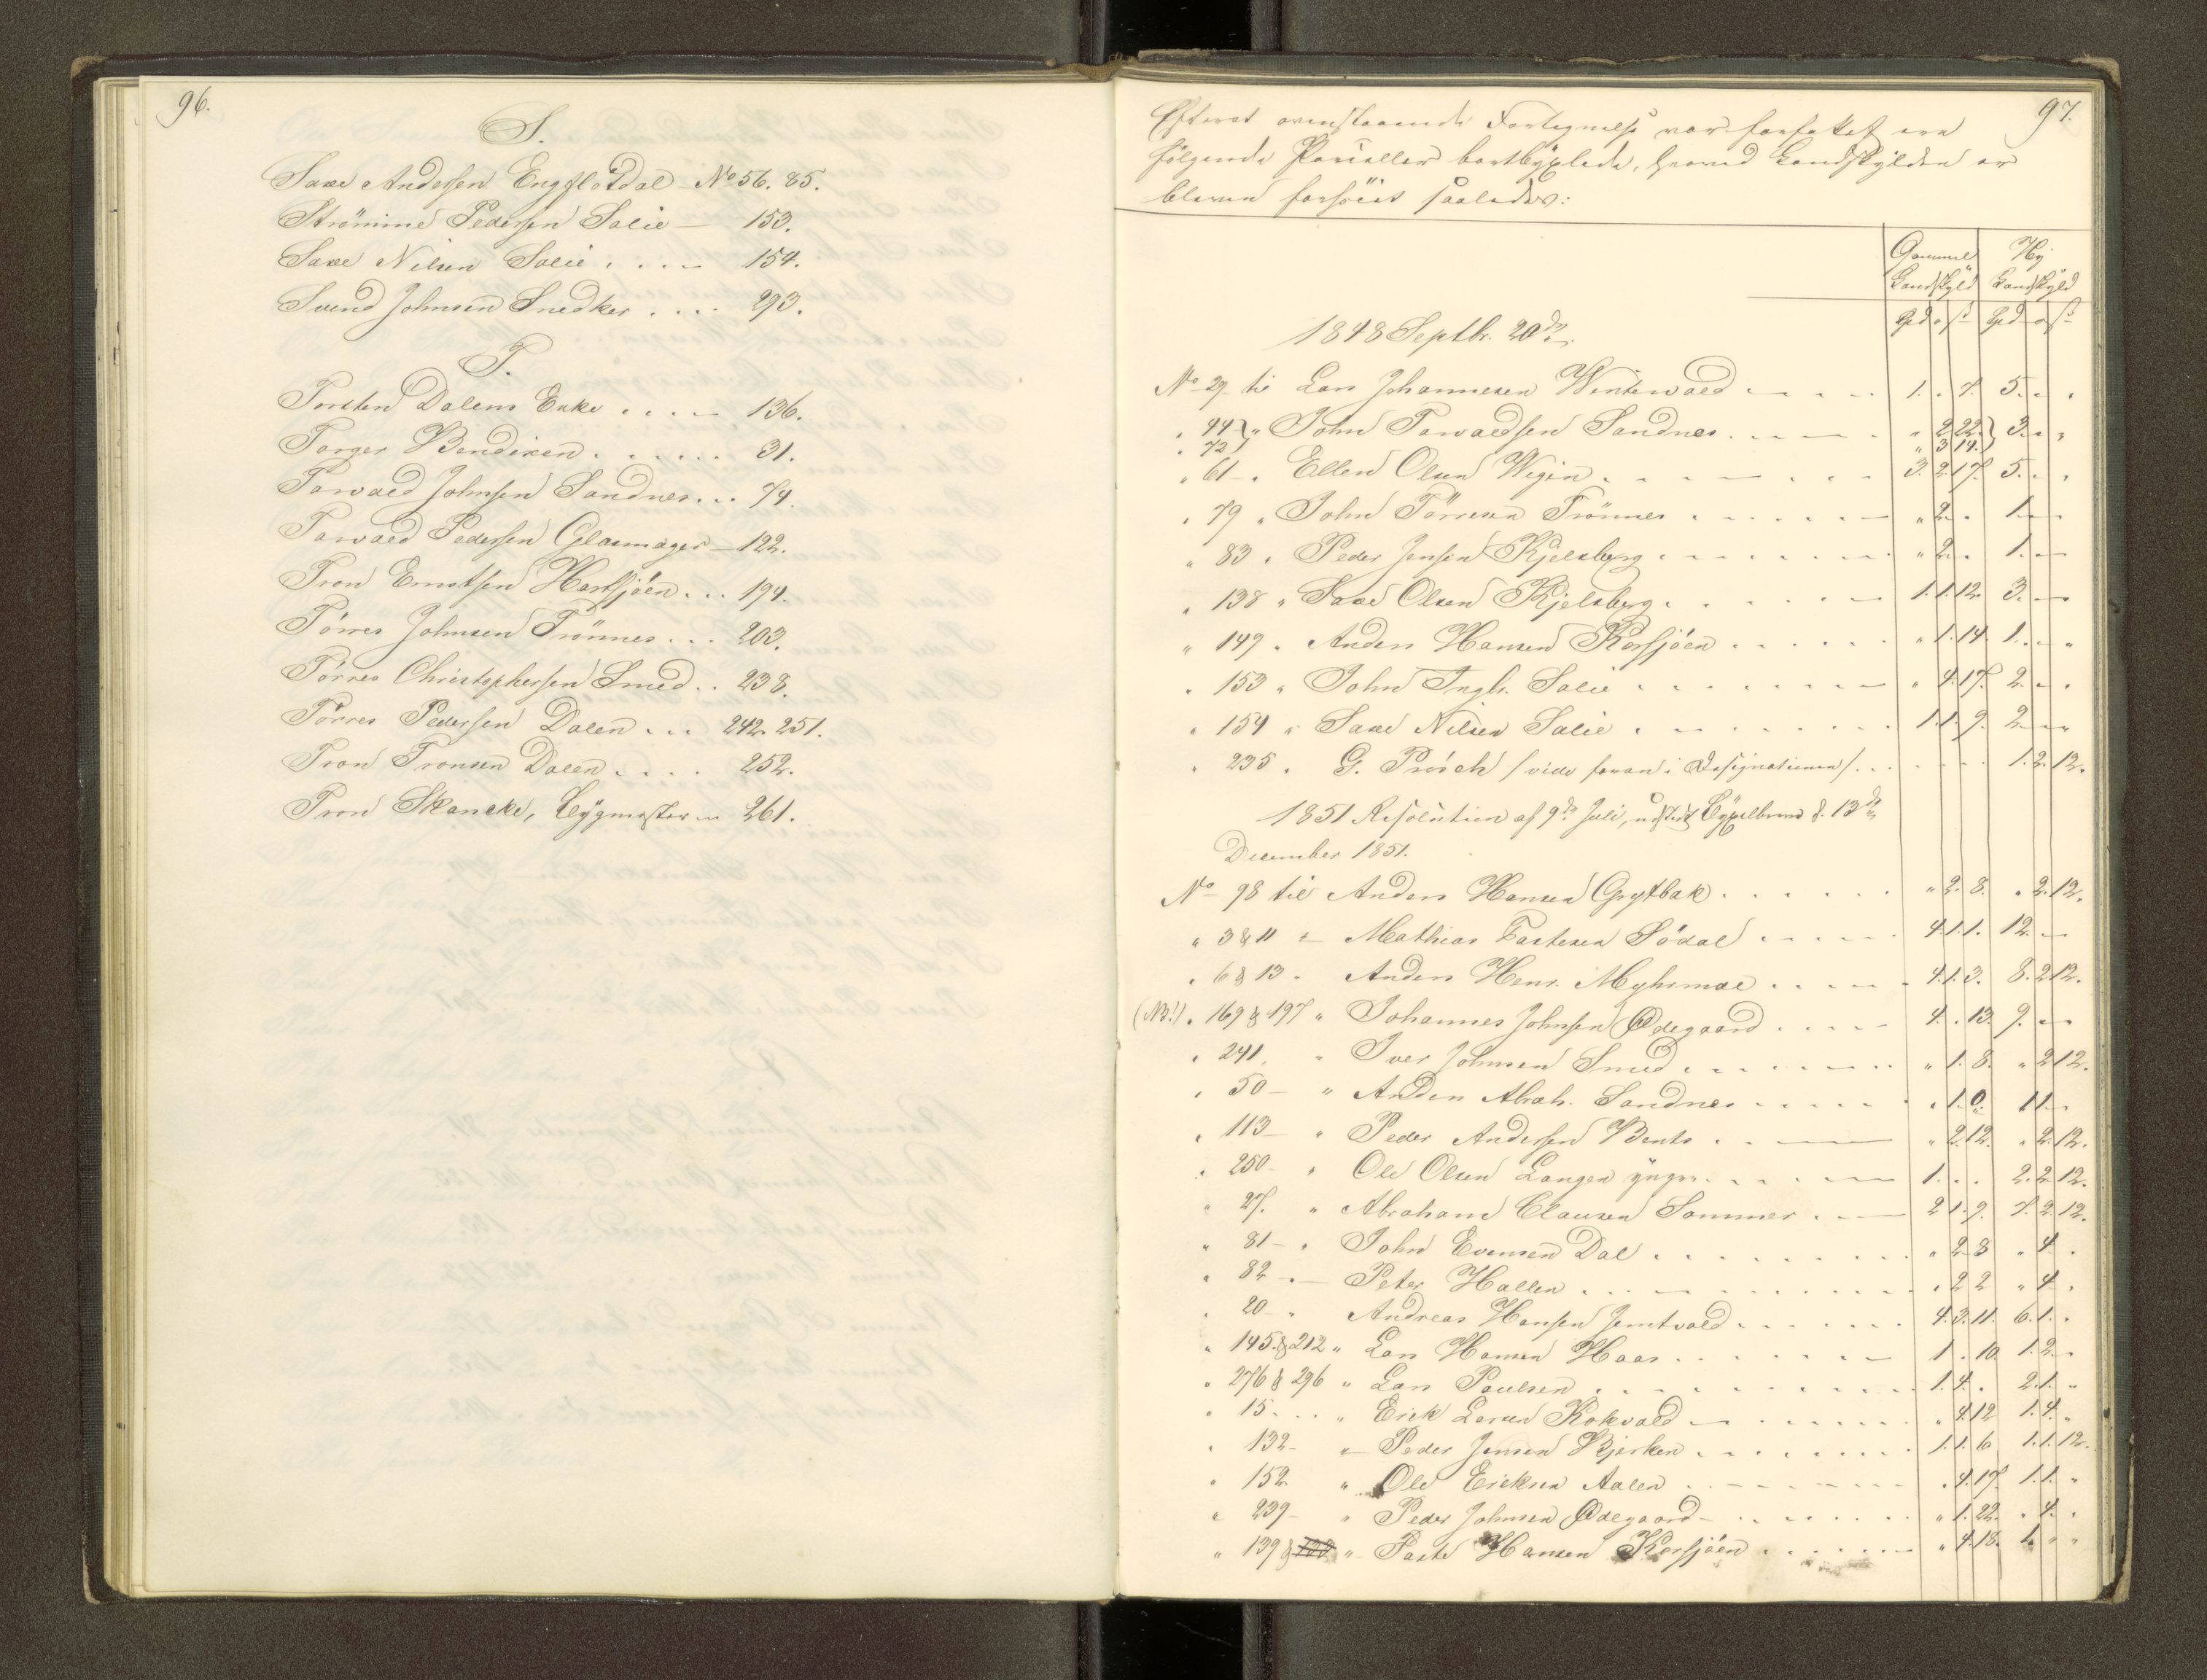 96.
S.
Saxe Andersen Engflotdal - No 56. 85.
Strömme Pedersen Salie - 153.
Saxe Nilsen Salie . . . - 154.
Svend Johnsen Snedker . . . . 293.
T.
Torsten Dalens Enke . . . - 136.
Torger Bendixen . . . . . 31.
Torvald Johnsen Sandnes . . . 74.
Torvald Pedersen Glasmager - 122.
Tron Erntsen Hartsjöen . . . 194.
Törres Johnsen Trönnes . . . 203.
Törres Christophersen Smed . . 238.
Törres Pedersen Dalen . . . 242. 251.
Tron Tronsen Dalen . . . . 252.
Tron Skancke, Bygmester - 261.
97.
Efterat ovenstaaende Fortegnelse var forfattet ere
følgende Parceller bortbyxlede, hvorved Landskylden er
bleven forhöiet saaledes:
Gammel Landskyld Ny Landskyld
1848 Septbr. 20de
No 29 til Lars Johannesen Wintervold . . . 1. . 7. 5. . .
" 44 } " John Torvaldsen Sandnes . . . " 2 22 } 3. . "
" 72 } " 3 14.
" 61 - " Ellen Olsen Wigen . . . 3. 2 17. 5. . .
" 79 " John Törresen Trönnes . . . " 2 . 1. - -
" 83 " Peder Jensen Kjelsberg . . . " 2 . 1. - -
" 138 " Saxe Olsen Kjelsberg . . . 1. 1. 12. 3. - -
" 149 " Anders Hansen Korssjöen . . . " 1. 14. 1. . "
" 153 " John Ingbr. Salie . . . " 4. 17. 2. . .
" 154 " Saxe Nilsen Salie . . . 1. 1. 9. 2. - -
" 235 " G. Prösch / vide foran i Designationen /. . . 1. 2. 12.
1851 Resolution af 9de Juli, udstedt Byxelbrev d. 13de
December 1851.
No 98 til Anders Hansen Grytbak . . . " 2. 8. " 2. 12.
" 3 & 11 " Mathias Fastesen Södal . . . 4. 1. 1. 12. - -
" 6 & 13 " Anders Henr. Myhrmoe . . . 4. 1. 3. 8. 2 12.
(NB!) " 169 & 197 " Johannes Johnsen Ødegaard . . . 4. . 13. 9. - -
" 241. " Iver Johnsen Smed . . . " 1. 8. " 2 12.
" 50 - " Anders Abrah. Sandnes . . . " 1. 0. 1 1. -
" 113 - " Peder Andersen Bents . . . " 2 12. " 2. 12.
" 250 - " Ole Olsen Langen yngre . . . 1. . . 2. 2. 12.
" 27. " Abraham Clausen Sommer . . . 2 1. 9. 7. 2 12.
" 81 - " John Evensen Dal . . . " 2 8 " 4 .
" 82 - " Peter Hallen . . . " 2 2 " 4 .
" 20 - " Andreas Hansen Jemtvold . . . 4. 3. 11. 6. 1. .
" 145. & 212 " Lars Hansen Haas . . . 1 . 10. 1. 2. -
" 276 & 296 " Lars Paulsen . . . 1. 4. . 2. 1. "
" 15 - . . " Erick Larsen Kokvold . . . " 4. 12 1. 4. "
" 132 - " Peder Jensen Bjerken . . . 1. 1. 6 1. 1. 12.
" 152 " Ole Ericksen Aalen . . . " 4. 17. 1. 1. "
" 239 - " Peder Johnsen Ødegaard . . . " 1. 22. " 4. "
" 139 & 133 " Faste Hansen Korssjöen . . . " 4. 18. 1. " "